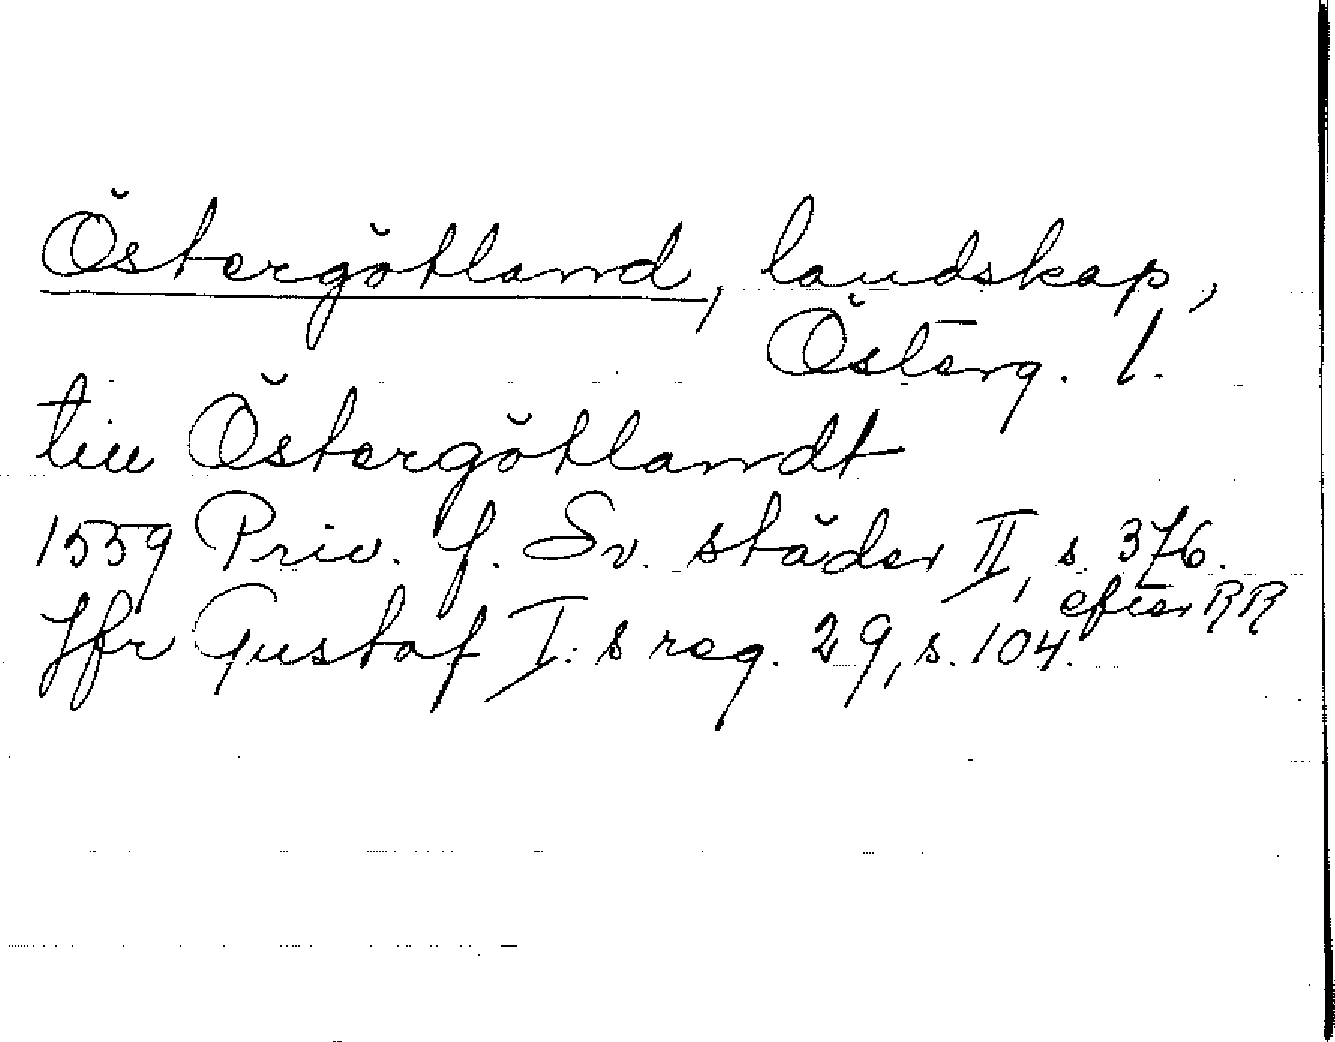 Östergötland, landskap,
Österg. l.
till Östergötlandt
1559 Priv. f. Sv. städer II, s. 376.
efter RR
Jfr Gustaf I:s reg. 29, s. 104.